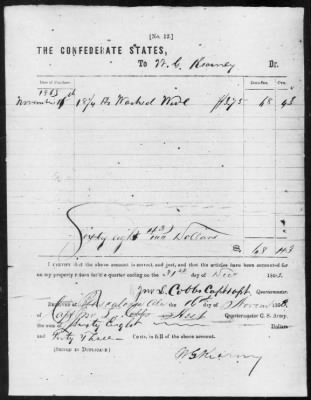 [No. 12.]
THE CONFEDERATE STATES,
To W. C. Dr.
Date of Purchase. Dollars. Cts.
1863
November 16th 18¼ lbs Washed Wool $3.75 68 43
Sixty eight 43/100 Dollars
$ 68 43
I CERTIFY that the above account is correct and just, and that the articles have been accounted for
on my property return for the quarter ending on the 31st day of Dec 1863.
Jno. L. Cobbs Capt &
Quartermaster.
RECEIVED at Tuscaloosa Ala the 16th of November 1863,
of Capt Jno L. Cobbs Quartermaster C. S. Army,
the sum of Sixty Eight Dollars
and Forty Three Cents, in full of the above account.
(SIGNED IN DUPLICATE)